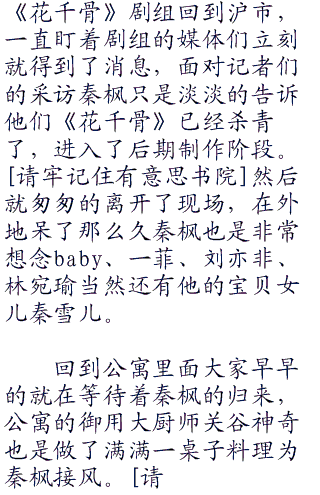 《花千骨》剧组回到沪市，
一直盯着剧组的媒体们立刻
就得到了消息，面对记者们
的采访秦枫只是淡淡的告诉
他们《花千骨》已经杀青
了，进入了后期制作阶段。
[请牢记住有意思书院]然后
就匆匆的离开了现场，在外
地呆了那么久秦枫也是非常
想念baby、一菲、刘亦非、
林宛瑜当然还有他的宝贝女
儿秦雪儿。
回到公寓里面大家早早
的就在等待着秦枫的归来，
公寓的御用大厨师关谷神奇
也是做了满满一桌子料理为
秦枫接风。[请